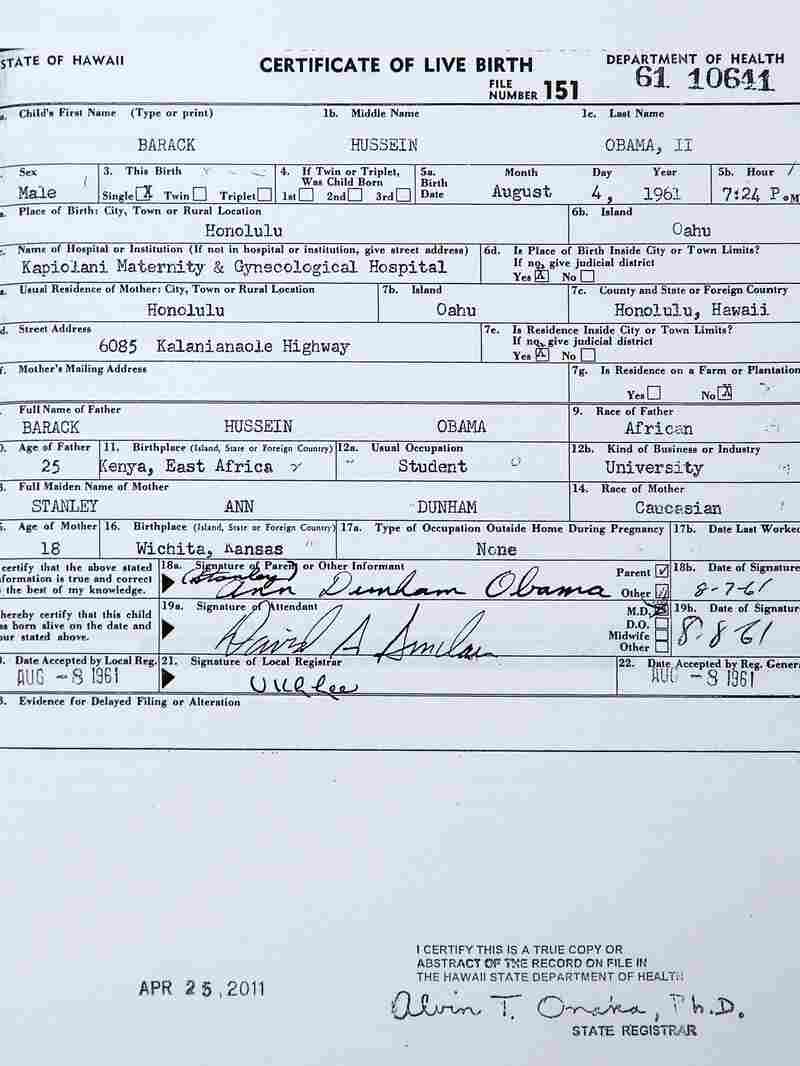 STATE OF HAWAII CERTIFICATE OF LIVE BIRTH DEPARTMENT OF HEALTH
FILE NUMBER 151 61 10641
a. Child's First Name (Type or print) 1b. Middle Name 1c. Last Name
BARACK HUSSEIN OBAMA, II
Sex 3. This Birth 4. If Twin or Triplet, Was Child Born 5a. Birth Date Month Day Year 5b. Hour
Male Single X Twin Triplet 1st 2nd 3rd August 4, 1961 7:24 P.M
a. Place of Birth: City, Town or Rural Location 6b. Island
Honolulu Oahu
c. Name of Hospital or Institution (If not in hospital or institution, give street address) 6d. Is Place of Birth Inside City or Town Limits?
If no, give judicial district
Kapiolani Maternity & Gynecological Hospital Yes X No
a. Usual Residence of Mother: City, Town or Rural Location 7b. Island 7c. County and State or Foreign Country
Honolulu Oahu Honolulu, Hawaii
d. Street Address 7e. Is Residence Inside City or Town Limits?
If no, give judicial district
6085 Kalanianaole Highway Yes X No
f. Mother's Mailing Address 7g. Is Residence on a Farm or Plantation
Yes No X
Full Name of Father 9. Race of Father
BARACK HUSSEIN OBAMA African
0. Age of Father 11. Birthplace (Island, State or Foreign Country) 12a. Usual Occupation 12b. Kind of Business or Industry
25 Kenya, East Africa Student University
3. Full Maiden Name of Mother 14. Race of Mother
STANLEY ANN DUNHAM Caucasian
5. Age of Mother 16. Birthplace (Island, State or Foreign Country) 17a. Type of Occupation Outside Home During Pregnancy 17b. Date Last Worked
18 Wichita, Kansas None
certify that the above stated 18a. Signature of Parent or Other Informant Parent 18b. Date of Signature
formation is true and correct (Stanley) Ann Dunham Obama 8-7-61
the best of my knowledge. Other
hereby certify that this child 19a. Signature of Attendant M.D. 19b. Date of Signature
as born alive on the date and David A Sinclair D.O. 8-8-61
our stated above. Midwife
Other
0. Date Accepted by Local Reg. 21. Signature of Local Registrar 22. Date Accepted by Reg. Gener
AUG -8 1961 U K L Lee AUG -8 1961
3. Evidence for Delayed Filing or Alteration
I CERTIFY THIS IS A TRUE COPY OR
ABSTRACT OF THE RECORD ON FILE IN
THE HAWAII STATE DEPARTMENT OF HEALTH
APR 25, 2011
Alvin T. Onaka, Ph.D.
STATE REGISTRAR